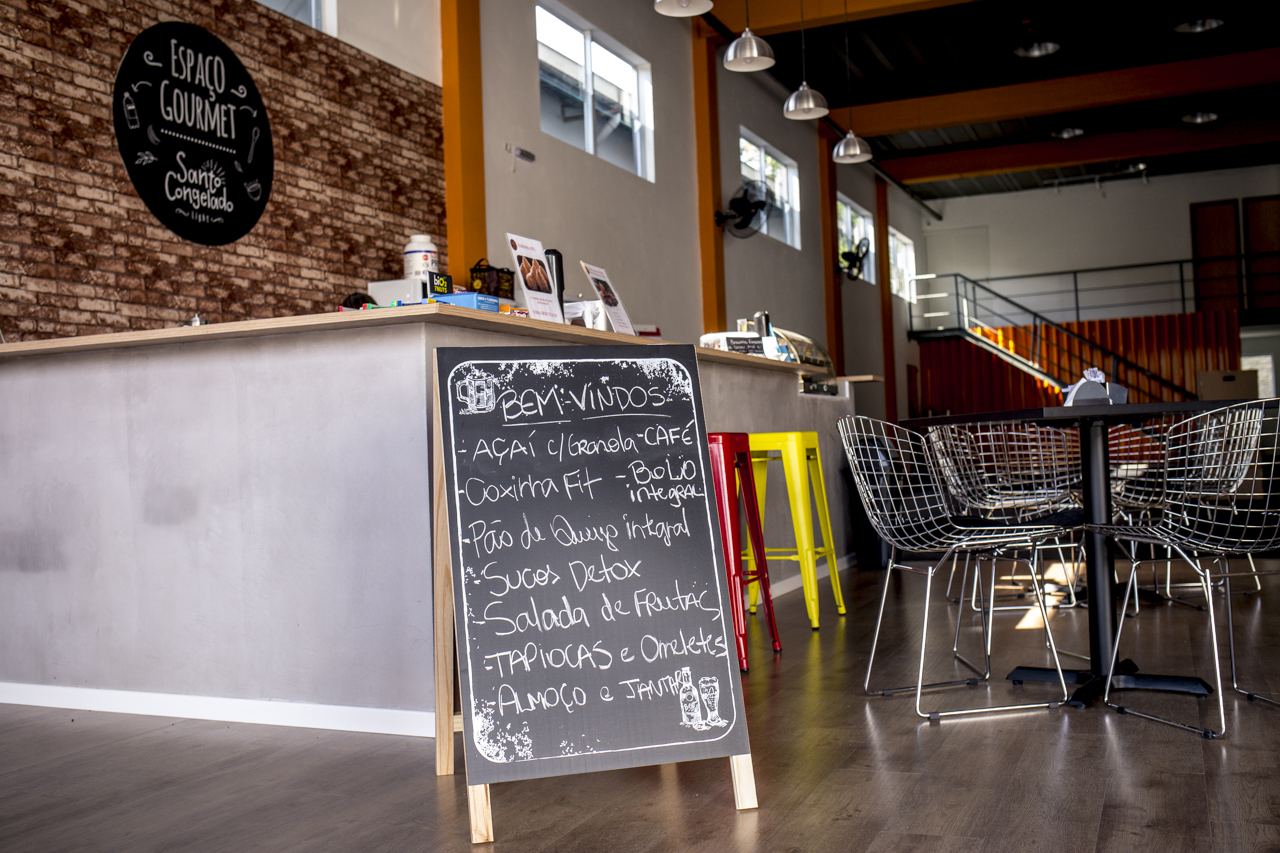 ESPAÇO
GOURMET
Santo
Congelado
light
BEM-VINDOS
-AÇAÍ c/Granola -CAFÉ
-Coxinha Fit -BOLO
integral
-Pão de Queijo integral
-Sucos Detox
-Salada de Frutas
-TAPIOCAS e Omeletes
-ALMOÇO e JANTAR
biO2
7NUTS